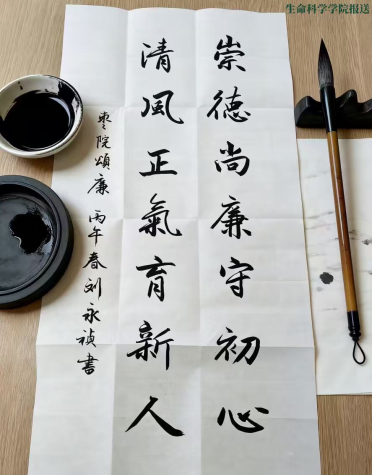 生命科学学院报送
崇德尚廉守初心
清风正氣育新人
枣院頌廉 丙午春刘永祯書